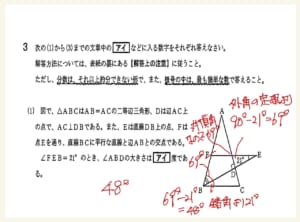 3 次の(1)から(3)までの文章中の アイ などに入る数字をそれぞれ答えなさい。
解答方法については、表紙の裏にある【解答上の注意】に従うこと。
ただし、分数は、それ以上約分できない形で、また、根号の中は、最も簡単な数で答えること。
(1) 図で、△ABCはAB=ACの二等辺三角形、Dは辺AC上
の点で、AC⊥DBである。また、Eは直線DB上の点、Fは
点Eを通り、直線BCに平行な直線と辺ABとの交点である。
∠FEB=21°のとき、∠ABDの大きさは アイ 度であ
る。
外角の定理より
90°-21°=69°
A
E
B
C
21°
69°
48°
69°-21°
=48°
錯角より21°